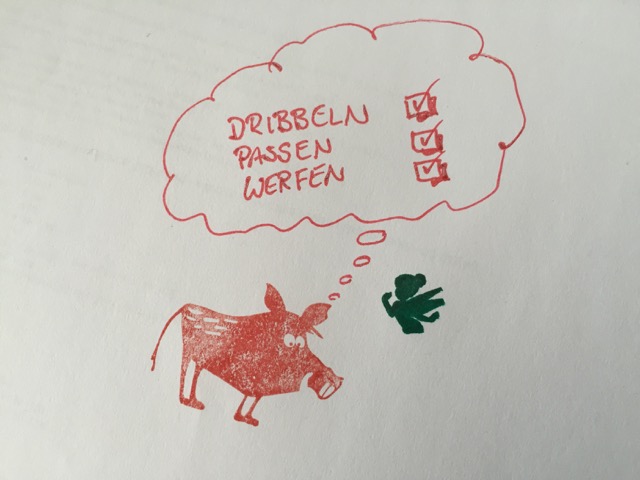 DRIBBELN
PASSEN
WERFEN